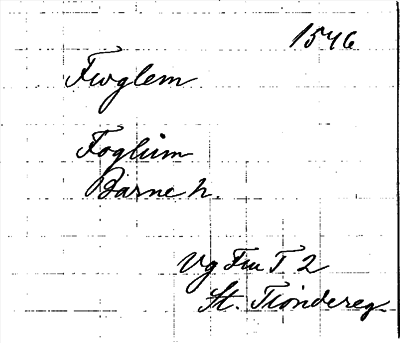 1546
Fuglem
Foglum
Barne h.
Vg Fru T 2
St. Tiondereg.